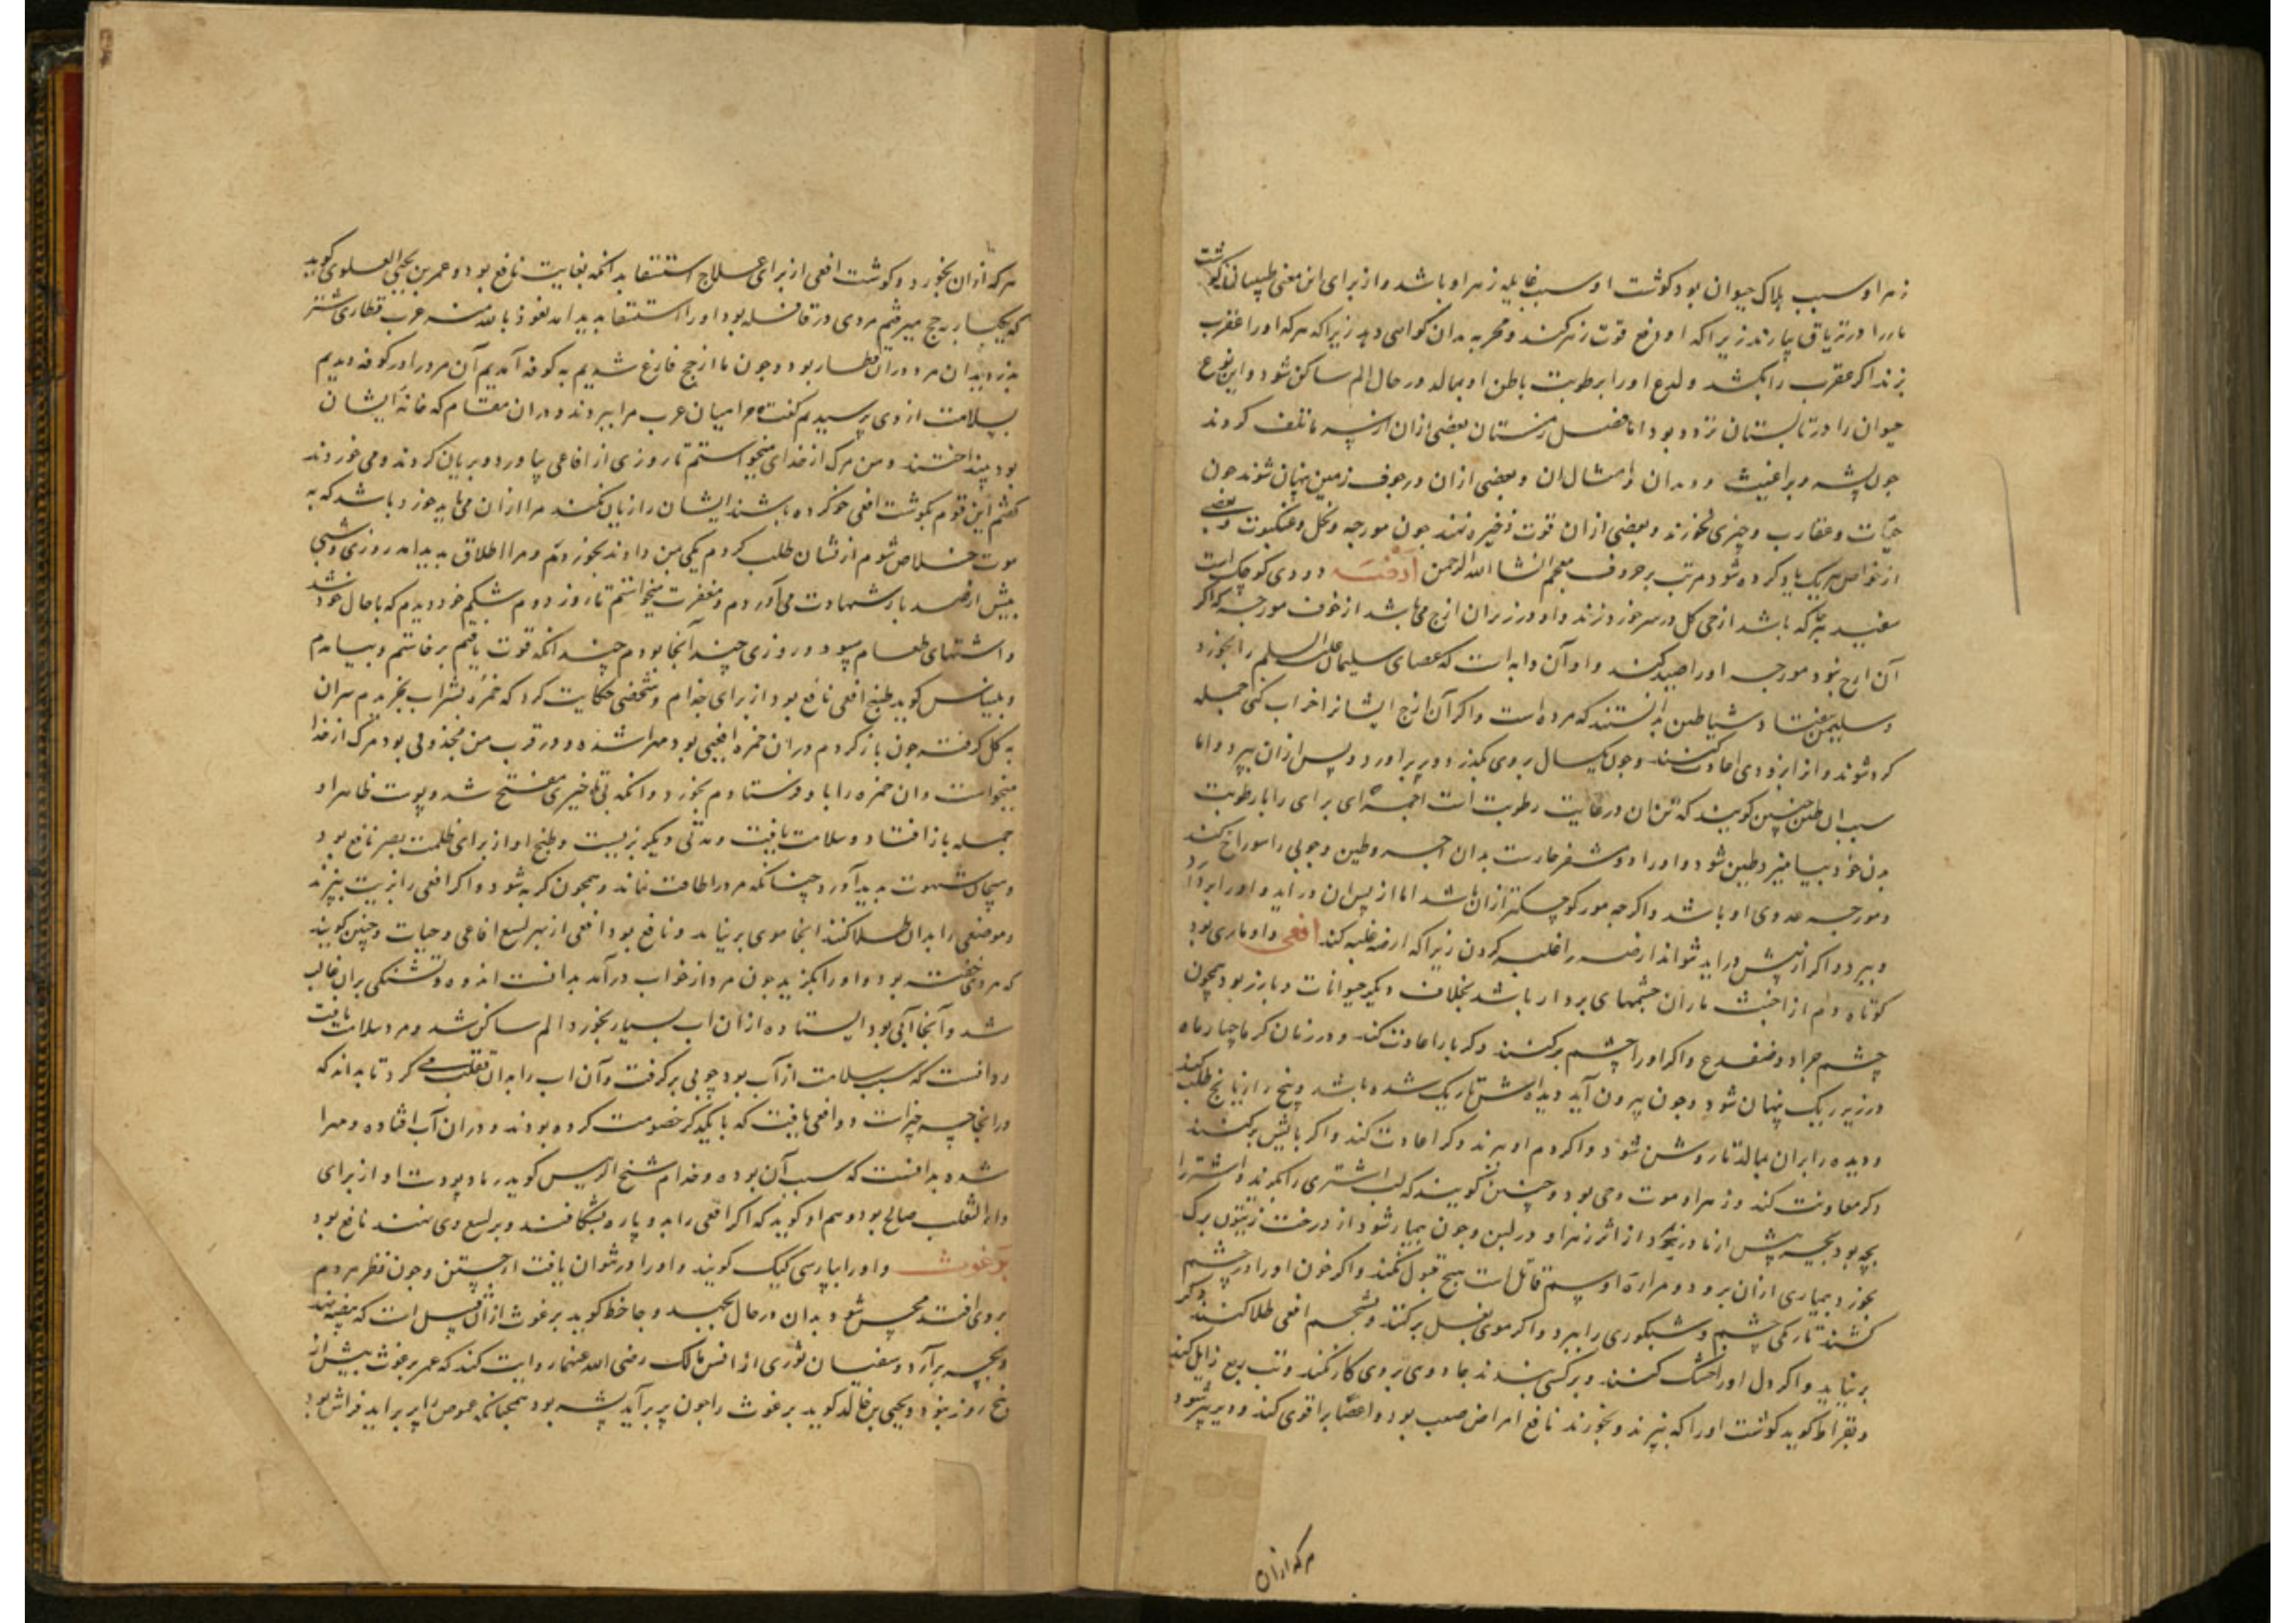 زهر او سبب هلاک حیوان بود کوشت او سبب غایله زهر او باشد و از برای این معنی طبیبان کوشت
مار را در تریاق بیارند زیرا که او دفع قوت زهر کند و تجربه بدان کواهی دهد زیرا که هرکه او را عقرب
بزند اکر عقرب را بکشد و لدغ او را برطوبت باطن او بمالد در حال الم ساکن شود و این نوع
حیوان را در تابستان تردد بود اما فصل زمستان بعضی ازان از سرما تلف کردند
جون پشه و براغیث و دیدان و امثال ان و بعضی ازان در جوف زمین پنهان شوند جون
حیات و عقارب و چیزی نخورند و بعضی ازان قوت ذخیره نهند جون مورجه و نحل و عنکبوت و بعضی
از خواص هریک یاد کرده شود مرتب بر حروف معجم انشا الله الرحمن ارضه دودی کوچک است
سفید هرجا که باشد از حی کل در سر خود زند و او در زیر ان ازج می باشد از خوف مورجه که اکر
آن ازج نبود مورجه او را صید کند و او آن دابه است که عصای سلیمان علیه السلم را بخورد
و سلیمن بیفتاد و شیاطین بدانستند که مرده است و اکر آن ازج ایشانرا خراب کنی جمله
کرد شوند و از ابزودی اعادت کنند و جون یکسال بروی بکذرد دو پر براورد و پس ازان بپرد و اما
سبب ان طین چنین کویند که تن ان در غایت رطوبت است اجزای برای را با رطوبت
بدن خود بیامیزد و طین شود و او را دو مشفر حادست بدان اجر و طین و جوبی را سوراخ کند
و مورجه عدوی او باشد و اکرجه مور کوچکتر ازان باشد اما از پس ان دراید و او را بردارد
و ببرد و اکر از پیش دراید نتواند ارضه را غلبه کردن زیرا که ارضه غلبه کند افعی و او ماری بود
کوتاه دم از اخبث ماران چشمهای بردار باشد بخلاف دیکر حیوانات و بارز بود همچون
چشم جراد و ضفدع و اکر او را چشم برکنند دکر باره اعادت کند و در زمان کرما چهار ماه
در زیر ریک پنهان شود و جون بیرون آید دیدهاش تاریک شده باشد و بیخ رازیانج طلب کند
و دیده را بران بمالد تا روشن شود و اکر دم او ببرند دکر اعادت کند و اکر بانیش برکنند
دکر معاودت کند و زهر او موت وحی بود و چنین کویند که لب اشتری را بکزند و اشتر را
بچه بود بچه پیش از مادر بمیرد از اثر زهر او در لبن و جون بیمار شود از درخت زیتون برک
بخورد بیماری ازان برود و مرارة او سم قاتل است هیچ قبول نکند و اکر خون او را در چشم
کشند تاریکی چشم و شبکوری را ببرد و اکر موی بغل برکنند و بشحم افعی طلا کنند دکر
برنیاید و اکر دل او را خشک کنند و بر کسی بندند جادوی بروی کار نکند و تب ربع زایل کند
و بقراط کوید کوشت او را که بپزند و بخورند نافع امراض صعب بود و اعضا را قوی کند و دیر پیر شود
هرکه ازان
هرکه ازان بخورد و کوشت افعی از برای علاج استسقا بدانکه بغایت نافع بود و عمر بن یحیی العلوی کوید
که یکبار بحج میرفتم مردی در قافله بود او را استسقا بدید امد نعوذ بالله منه عرب قطاری شتر
بدزدیدند ان مرد دران قطار بود و جون ما از حج فارغ شدیم به کوفه آمدیم آن مرد را در کوفه دیدیم
بسلامت از وی پرسیدیم کفت مرا میان عرب مرا ببردند و دران مقام که خانه ایشان
بود بینداختند و من مرک از خدای میخواستم تا روزی از افاعی بیاورد و بریان کردند و می خوردند
کفتم این قوم بکوشت افعی خو کرده باشند ایشان را زیان نکند مرا ازان می باید خورد باشد که به
موت خلاص شوم ازیشان طلب کردم یکی بمن دادند بخوردم و مرا اطلاق بدید امد روزی و شبی
بیش از صد بار شهادت می آوردم و مغفرت میخواستم تا روز دوم شکم خود دیدم که باحال خود شد
و اشتهای طعام پیود و روزی چند آنجا بودم چندانکه قوت یافتم برخاستم و بیامدم
و بلیناس کوید طبخ افعی نافع بود از برای جذام و شخصی حکایت کرد که خمره شراب بخریدم سران
به کل کرفته جون باز کردم دران خمره افعیی بود مهرا شده و در قرب من مجذومی بود مرک از خدا
میخواست و ان خمره را با او فرستادم بخورد و انکه تن او خیری منتفخ شد و پوست ظاهر او
جمله باز افتاد و سلامت یافت و مدتی دیکر بزیست و طبخ او از برای ظلمت بصر نافع بود
و هیجان شهوت بدید آورد چنانکه مرد را طاقت نماند و همجون کربه شود و اکر افعی را زیت بپزند
و موضعی را بدان طلا کنند انجا موی برنیاید و نافع بود افعی از بهر لسع افاعی و حیات و چنین کویند
که مردی خفته بود و او را بکزید جون مرد از خواب درآمد بدانست اندوه و تشنکی بران غالب
شد و آنجا آبی بود ایستاده ازان اب بسیار بخورد الم ساکن شد و مرد سلامت یافت
و دانست که سبب سلامت از آب بود چوبی برکرفت و آن اب را بدان تقلب می کرد تا بداند که
در انجا چه چیز است دو افعی یافت که با یکدکر خصومت کرده بودند و دران آب افتاده و مهرا
شده بدانست که سبب آن بوده و خدام شیخ الریس کوید رماد پوست او از برای
داء الثعلب صالح بود و هم او کوید که اکر افعی را بدو پاره بشکافند و بر لسع وی نهند نافع بود
برغوث و او را بپارسی کیک کویند و او را در نتوان یافت از جستن و جون نظر مردم
بروی افتد محس شود بدان در حال بجهد و جاحظ کوید برغوث ازان نسل است که بیضه نهد
و بچه برآرد و سفیان ثوری از انس مالک رضی الله عنهما روایت کند که عمر برغوث بیش از
پنج روز نبود و یحیی بن خالد کوید برغوث را جون پر برآید پشه بود همچنانکه دعموص را پر براید فراش بود